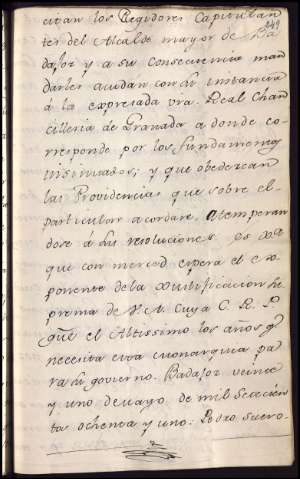 citan los Regidores Capitulan
tes del Alcalde mayor de Ba
dajoz y a su consecuencia man
darles acudan con su instancia
á la expresada vra. Real Chan
cilleria de Granada a donde co
rresponde por los fundamentos
insinuados; y que obedezcan
las Providencias que sobre el
particular acordare, atemperan
dose á sus resoluciones es
que con merced espera el ex
ponente de la Justificacion Su
prema de V. A. Cuya C. R. P.
que el Altissimo los años q
necesita esta monarquia pa
ra su govierno. Badajoz veinte
y uno de mayo de mil setecien
tos ochenta y uno: Pedro Suero